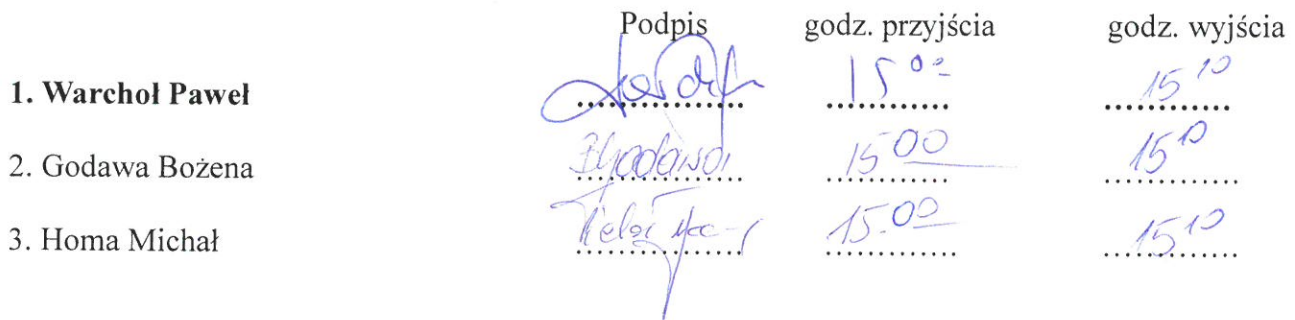 Podpis godz. przyjścia godz. wyjścia
1. Warchoł Paweł 15⁰⁰ 15¹⁰
2. Godawa Bożena BGodawa 15⁰⁰ 15¹⁰
3. Homa Michał 15.⁰⁰ 15¹⁰